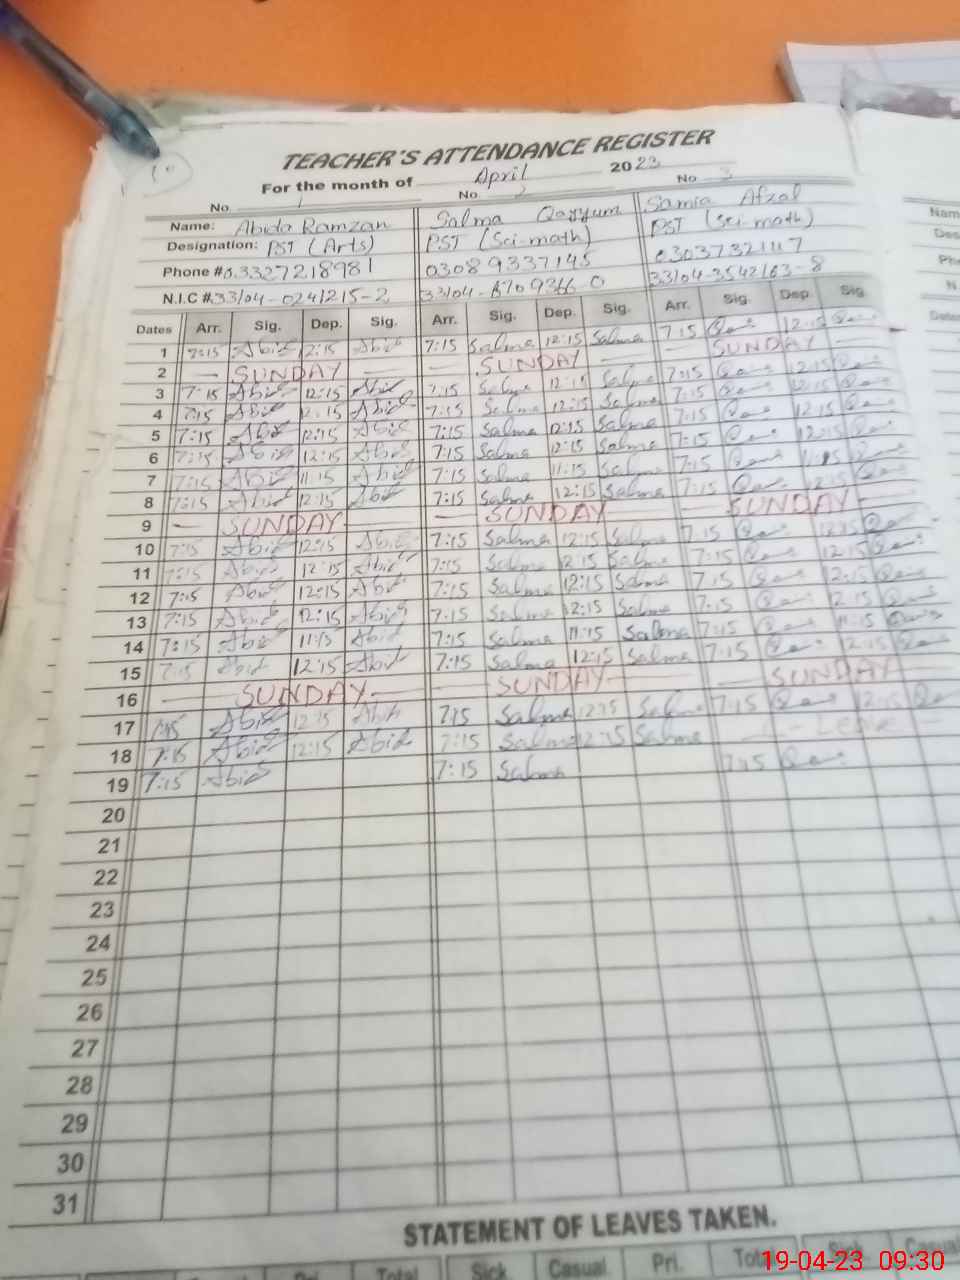 TEACHER'S ATTENDANCE REGISTER
For the month of April 2023
No. 1 No. 2 No 3
Name: Abida Ramzan Salma Qayyum Samia Afzal
Designation: PST (Arts) PST (Sci-math) PST (Sci-math)
Phone # 03327218981 03089337145 03037321117
N.I.C # 33104-0241215-2 33104- 0 33104-3542163-8
Dates Arr. Sig. Dep. Sig. Arr. Sig. Dep. Sig. Arr. Sig. Dep. Sig.
1 7:15 Abid 12:15 Abid 7:15 Salma 12:15 Salma 7:15 12:15
2 — SUNDAY — — SUNDAY — — SUNDAY —
3 7:15 Abid 12:15 Abid 7:15 Salma 12:15 Salma 7:15 12:15
4 7:15 Abid 12:15 Abid 7:15 Salma 12:15 Salma 7:15 12:15
5 7:15 Abid 12:15 Abid 7:15 Salma 12:15 Salma 7:15 12:15
6 7:15 Abid 12:15 Abid 7:15 Salma 12:15 Salma 7:15 12:15
7 7:15 Abid 11:15 Abid 7:15 Salma 11:15 Salma 7:15 11:15
8 7:15 Abid 12:15 Abid 7:15 Salma 12:15 Salma 7:15 12:15
9 — SUNDAY — — SUNDAY — — SUNDAY —
10 7:15 Abid 12:15 Abid 7:15 Salma 12:15 Salma 7:15 12:15
11 7:15 Abid 12:15 Abid 7:15 Salma 12:15 Salma 7:15 12:15
12 7:15 Abid 12:15 Abid 7:15 Salma 12:15 Salma 7:15 12:15
13 7:15 Abid 12:15 Abid 7:15 Salma 12:15 Salma 7:15 12:15
14 7:15 Abid 11:15 Abid 7:15 Salma 11:15 Salma 7:15 11:15
15 7:15 Abid 12:15 Abid 7:15 Salma 12:15 Salma 7:15 12:15
16 — SUNDAY — — SUNDAY — — SUNDAY
17 7:15 Abid 12:15 Abid 7:15 Salma 12:15 Salma 7:15 12:15
18 7:15 Abid 12:15 Abid 7:15 Salma 12:15 Salma
19 7:15 Abid 7:15 Salma 7:15
20
21
22
23
24
25
26
27
28
29
30
31
STATEMENT OF LEAVES TAKEN.
Pri. Total Sick Casual Pri. Total Sick Casual
19-04-23 09:30